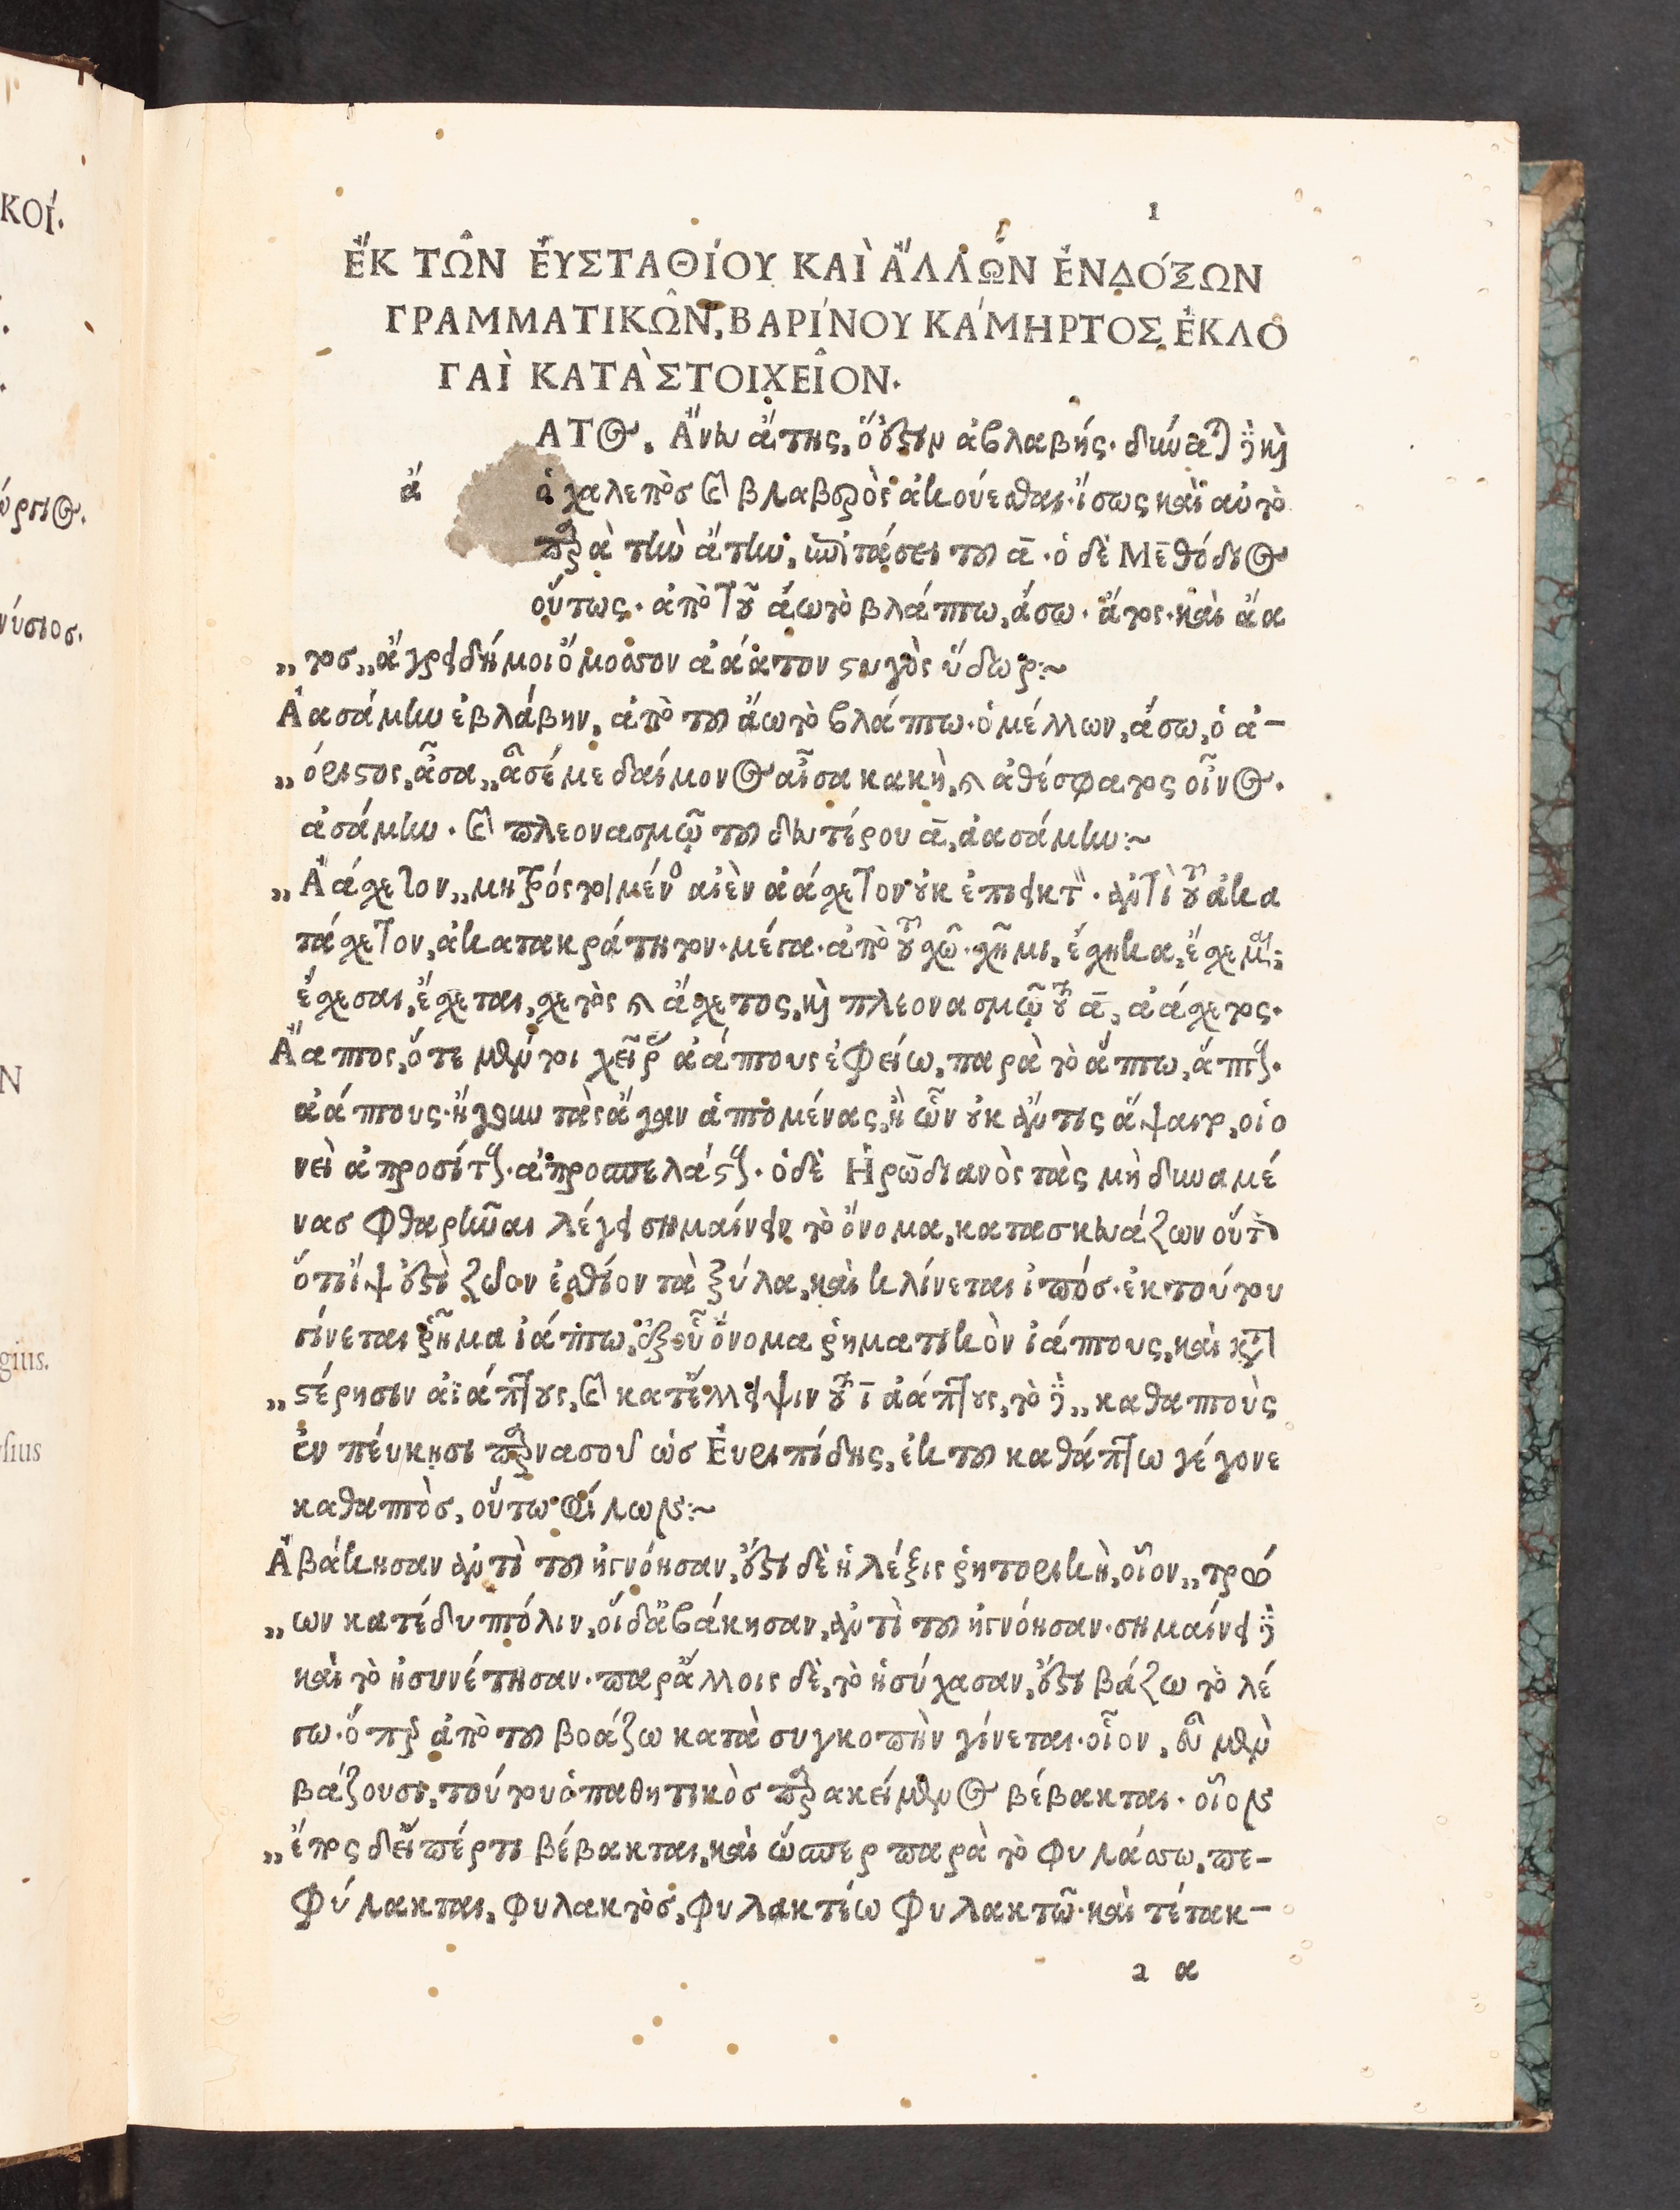 ΚΟΊ.
ώριος.
νύσιος.
Ν
gius.
sius
1
ἘΚ ΤΩ͂Ν ἘΥΣΤΑΘΊΟΥ ΚΑῚ ἌΛΛΩΝ ἘΝΔΌΞΩΝ
ΓΡΑΜΜΑΤΙΚΩ͂Ν, ΒΑΡΊΝΟΥ ΚΆΜΗΡΤΟΣ ἘΚΛΟ
ΓΑῚ ΚΑΤᾺ ΣΤΟΙΧΕΙ͂ΟΝ.
ΑΤΟς. Ἄνευ ἄτης, ὅ ἐστιν ἀβλαβής. δύναται δὲ καὶ
ἄ
ὁ χαλεπὸσ καὶ βλαβερὸς ἀκούεσθαι. ἴσως καὶ αὐτὸ
παρὰ τὴν ἄτην, ἐπιτάσει τοῦ ᾱ. ὁ δὲ Μεθόδιος
οὕτως. ἀπὸ τοῦ ἀῶ τὸ βλάπτω, ἄσω. ἄτος. καὶ ἄα
„ τοσ „ ἄγρει δή μοι ὄμοσσον ἀάατον στυγὸς ὕδωρ:~
Ἀασάμην ἐβλάβην, ἀπὸ τοῦ ἄω τὸ βλάπτω. ὁ μέλλων, ἄσω, ὁ ἀ-
„ όριστος, ἆσα, „ ἆσέ με δαίμονος αἶσα κακὴ, καὶ ἀθέσφατος οἶνος.
ἀσάμην. καὶ πλεονασμῷ τοῦ δευτέρου ᾱ, ἀασάμην:~
„ Ἀάσχετον, „ μητρός τοι μένος αἰὲν ἀάσχετον οὐκ ἐπιεικτὸν. ἀντὶ τοῦ ἀκα
τάσχετον, ἀκατακράτητον. μέγα. ἀπὸ τοῦ σχῶ. σχῆμι, ἔσχηκα, ἔσχεμαι,
ἔσχεσαι, ἔσχεται, σχετὸς καὶ ἄσχετος, καὶ πλεονασμῷ τοῦ ᾱ, ἀάσχετος.
Ἄαπτος, ὅτε μέν τοι χεῖρας ἀάπτους ἐφείω, παρὰ τὸ ἅπτω, ἅπτους.
ἀάπτους. ἤγουν τὰς ἄγαν ἁπτομένας, ἢ ὧν οὐκ ἄν τις ἅψαιτο, οἱο
νεὶ ἀπροσίτους. ἀπροσπελάστους. ὁ δὲ Ἡρωδιανὸς τὰς μὴ δυναμέ
νασ φθαρῆναι λέγει σημαίνειν τὸ ὄνομα, κατασκευάζων οὕτως
ὅτι ἲψ ἐστὶ ζῶον ἐσθίον τὰ ξύλα, καὶ κλίνεται ἰπόσ. ἐκ τούτου
γίνεται ῥῆμα ἰάπτω, ἐξ οὗ ὄνομα ῥηματικὸν ἰάπτους, καὶ κατὰ
„ στέρησιν ἀϊάπτους, καὶ κατ' ἔλλειψιν τοῦ ῑ ἀάπτους, τὸ δὲ „ καθαπτοὺς
ἐν πέυκησι παρνασοῦ ὡσ Ἐυριπίδης, ἐκ τοῦ καθάπτω γέγονε
καθαπτὸσ, οὕτω Φίλων:~
Ἀβάκησαν ἀντὶ τοῦ ἠγνόησαν, ἔστι δὲ ἡ λέξις ῥητορικὴ, οἷον „ τρώ
„ ων κατέδυ πόλιν, οἱ δ' ἀβάκησαν, ἀντὶ τοῦ ἠγνόησαν. σημαίνει δὲ
καὶ τὸ ἠσυνέτησαν. παρ' ἄλλοις δὲ, τὸ ἡσύχασαν, ἔστι βάζω τὸ λέ
γω. ὅπερ ἀπὸ τοῦ βοάζω κατὰ συγκοπὴν γίνεται. οἷον, εὖ μὲν
βάζουσι, τούτου ὁ παθητικὸσ παρακείμενος βέβακται. οἷον
„ ἔπος δ' εἴπέρ τι βέβακται, καὶ ὥσπερ παρὰ τὸ φυλάσσω, πε-
φύλακται, φυλακτὸσ, φυλακτέω φυλακτῶ. καὶ τέτακ-
a α